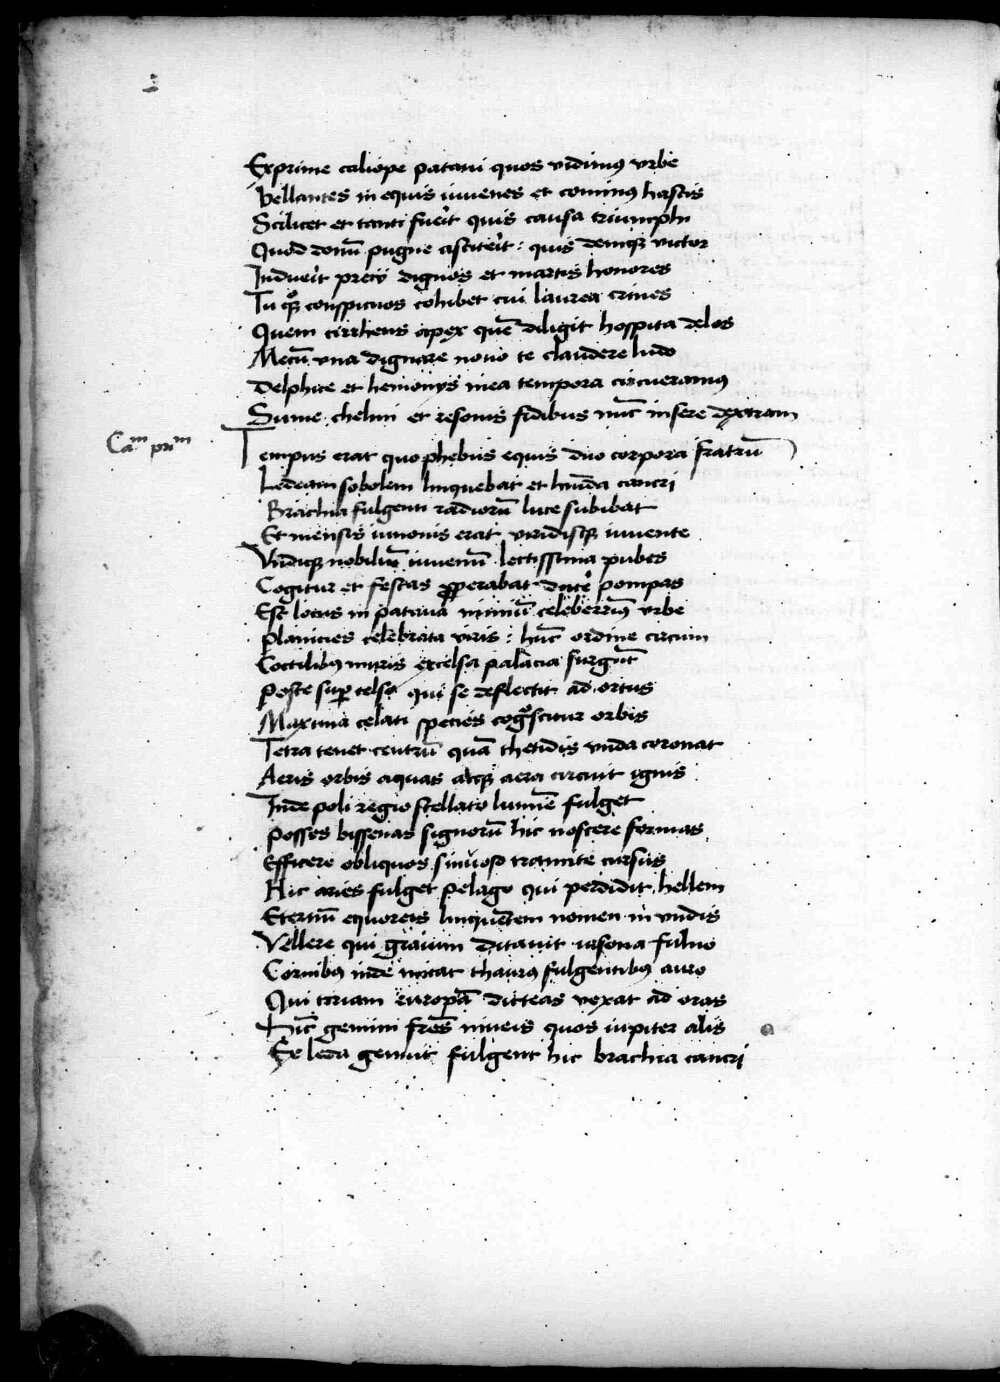 Exprime caliope patavi quos vidimꝰ vrbe
Bellantes in equis iuvenes et cominꝰ hastis
Scilicet et tanti fuerit quis causa triumphi
Quod donū pugne asciterit : quis deniqꝫ victor
Induerit precij dignos et martis honores
Tu qꝫ conspicuos cohibet cui laurea crines
Quem cirrheus apex quē diligit hospita delos
Mecū vna dignare novo te claudere ludo
Delphice et hemonijs mea tempora circueramꝰ
Sume chelim et resonis fidibus nūc insere dextram
Caᵐ prīᵐ
Tempus erat quo phebus equis duo corpora fratrū
Ledeam sobolem linquebat et humida cancri
Brachia fulgenti radiorū luce subibat
Et mensis iunonis erat viridisqꝫ iuvente
Vndiqꝫ nobiliū iuvenū lectissima pubes
Cogitur et festas properabat ducē pompas
Est locus in patava nimiū celeberrimꝰ vrbe
Planicies celebrata viris : hūc ordine circum
Coctilibꝰ muris excelsa palacia surgūt
Poste super celso qui se deflectit ad ortus
Maxima celati species cognoscitur orbis
Terra tenet centrū quā thetidis vnda coronat
Aeris orbis aquas atqꝫ aera circuit ignis
Inde poli regio stellato lumīe fulget
Posses bissenas signorū hic noscere formas
Efficere obliquos sinuoso tramite cursus
Hic aries fulget pelago qui perdidit hellem
Eternū equoreis linquentem nomen in vndis
Vellere qui graium ditavit iasona fulvo
Cornibꝰ inde micat thaurꝰ fulgentibꝰ auro
Qui tiriam europā dicteas vexat ad oras
Hīc gemini frēs niveis quos iupiter alis
Ex leda genuit fulgent hic brachia cancri